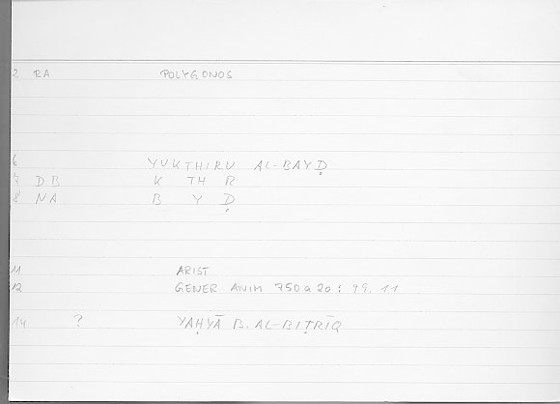 2 RA POLYGONOS
6 YUKTHIRU AL-BAYḌ
7 DB K TH R
8 NA B Y Ḍ
11 ARIST
12 GENER ANIM 750a20: 99.11
14 ? YAḤYĀ B. AL-BIṬRĪQ